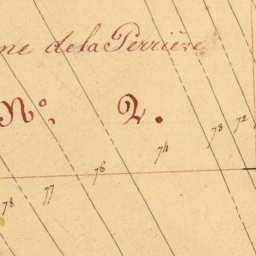 ne de la Perrière
N°. 2.
78 77 76 74 73 72